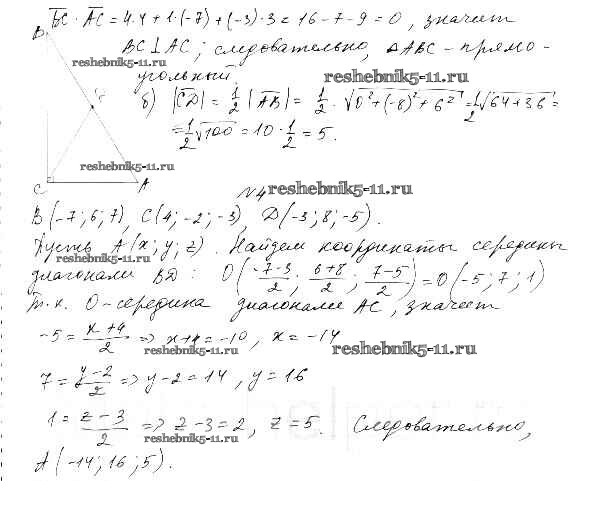 BC · AC = 4·4 + 1·(-7) + (-3)·3 = 16 - 7 - 9 = 0, значит
B
BC ⊥ AC; следовательно, ΔABC - прямо-
reshebnik5-11.ru
угольный.
reshebnik5-11.ru
б) |CD| = 1/2 |AB| = 1/2 · √(0² + (-8)² + 6²) = 1/2 √(64 + 36) =
= 1/2 √100 = 10 · 1/2 = 5.
reshebnik5-11.ru
C A
№4 reshebnik5-11.ru
B(-7; 6; 7), C(4; -2; -3), D(-3; 8; -5).
Пусть A(x; y; z). Найдем координаты середины
reshebnik5-11.ru
диагонали BD: O((-7-3)/2; (6+8)/2; (7-5)/2) = O(-5; 7; 1)
Т.к. O - середина диагонали AC, значит
-5 = (x+4)/2 => x+4 = -10, x = -14
reshebnik5-11.ru reshebnik5-11.ru
7 = (y-2)/2 => y-2 = 14, y = 16
1 = (z-3)/2 => z-3 = 2, z = 5. Следовательно,
reshebnik5-11.ru
A(-14; 16; 5).